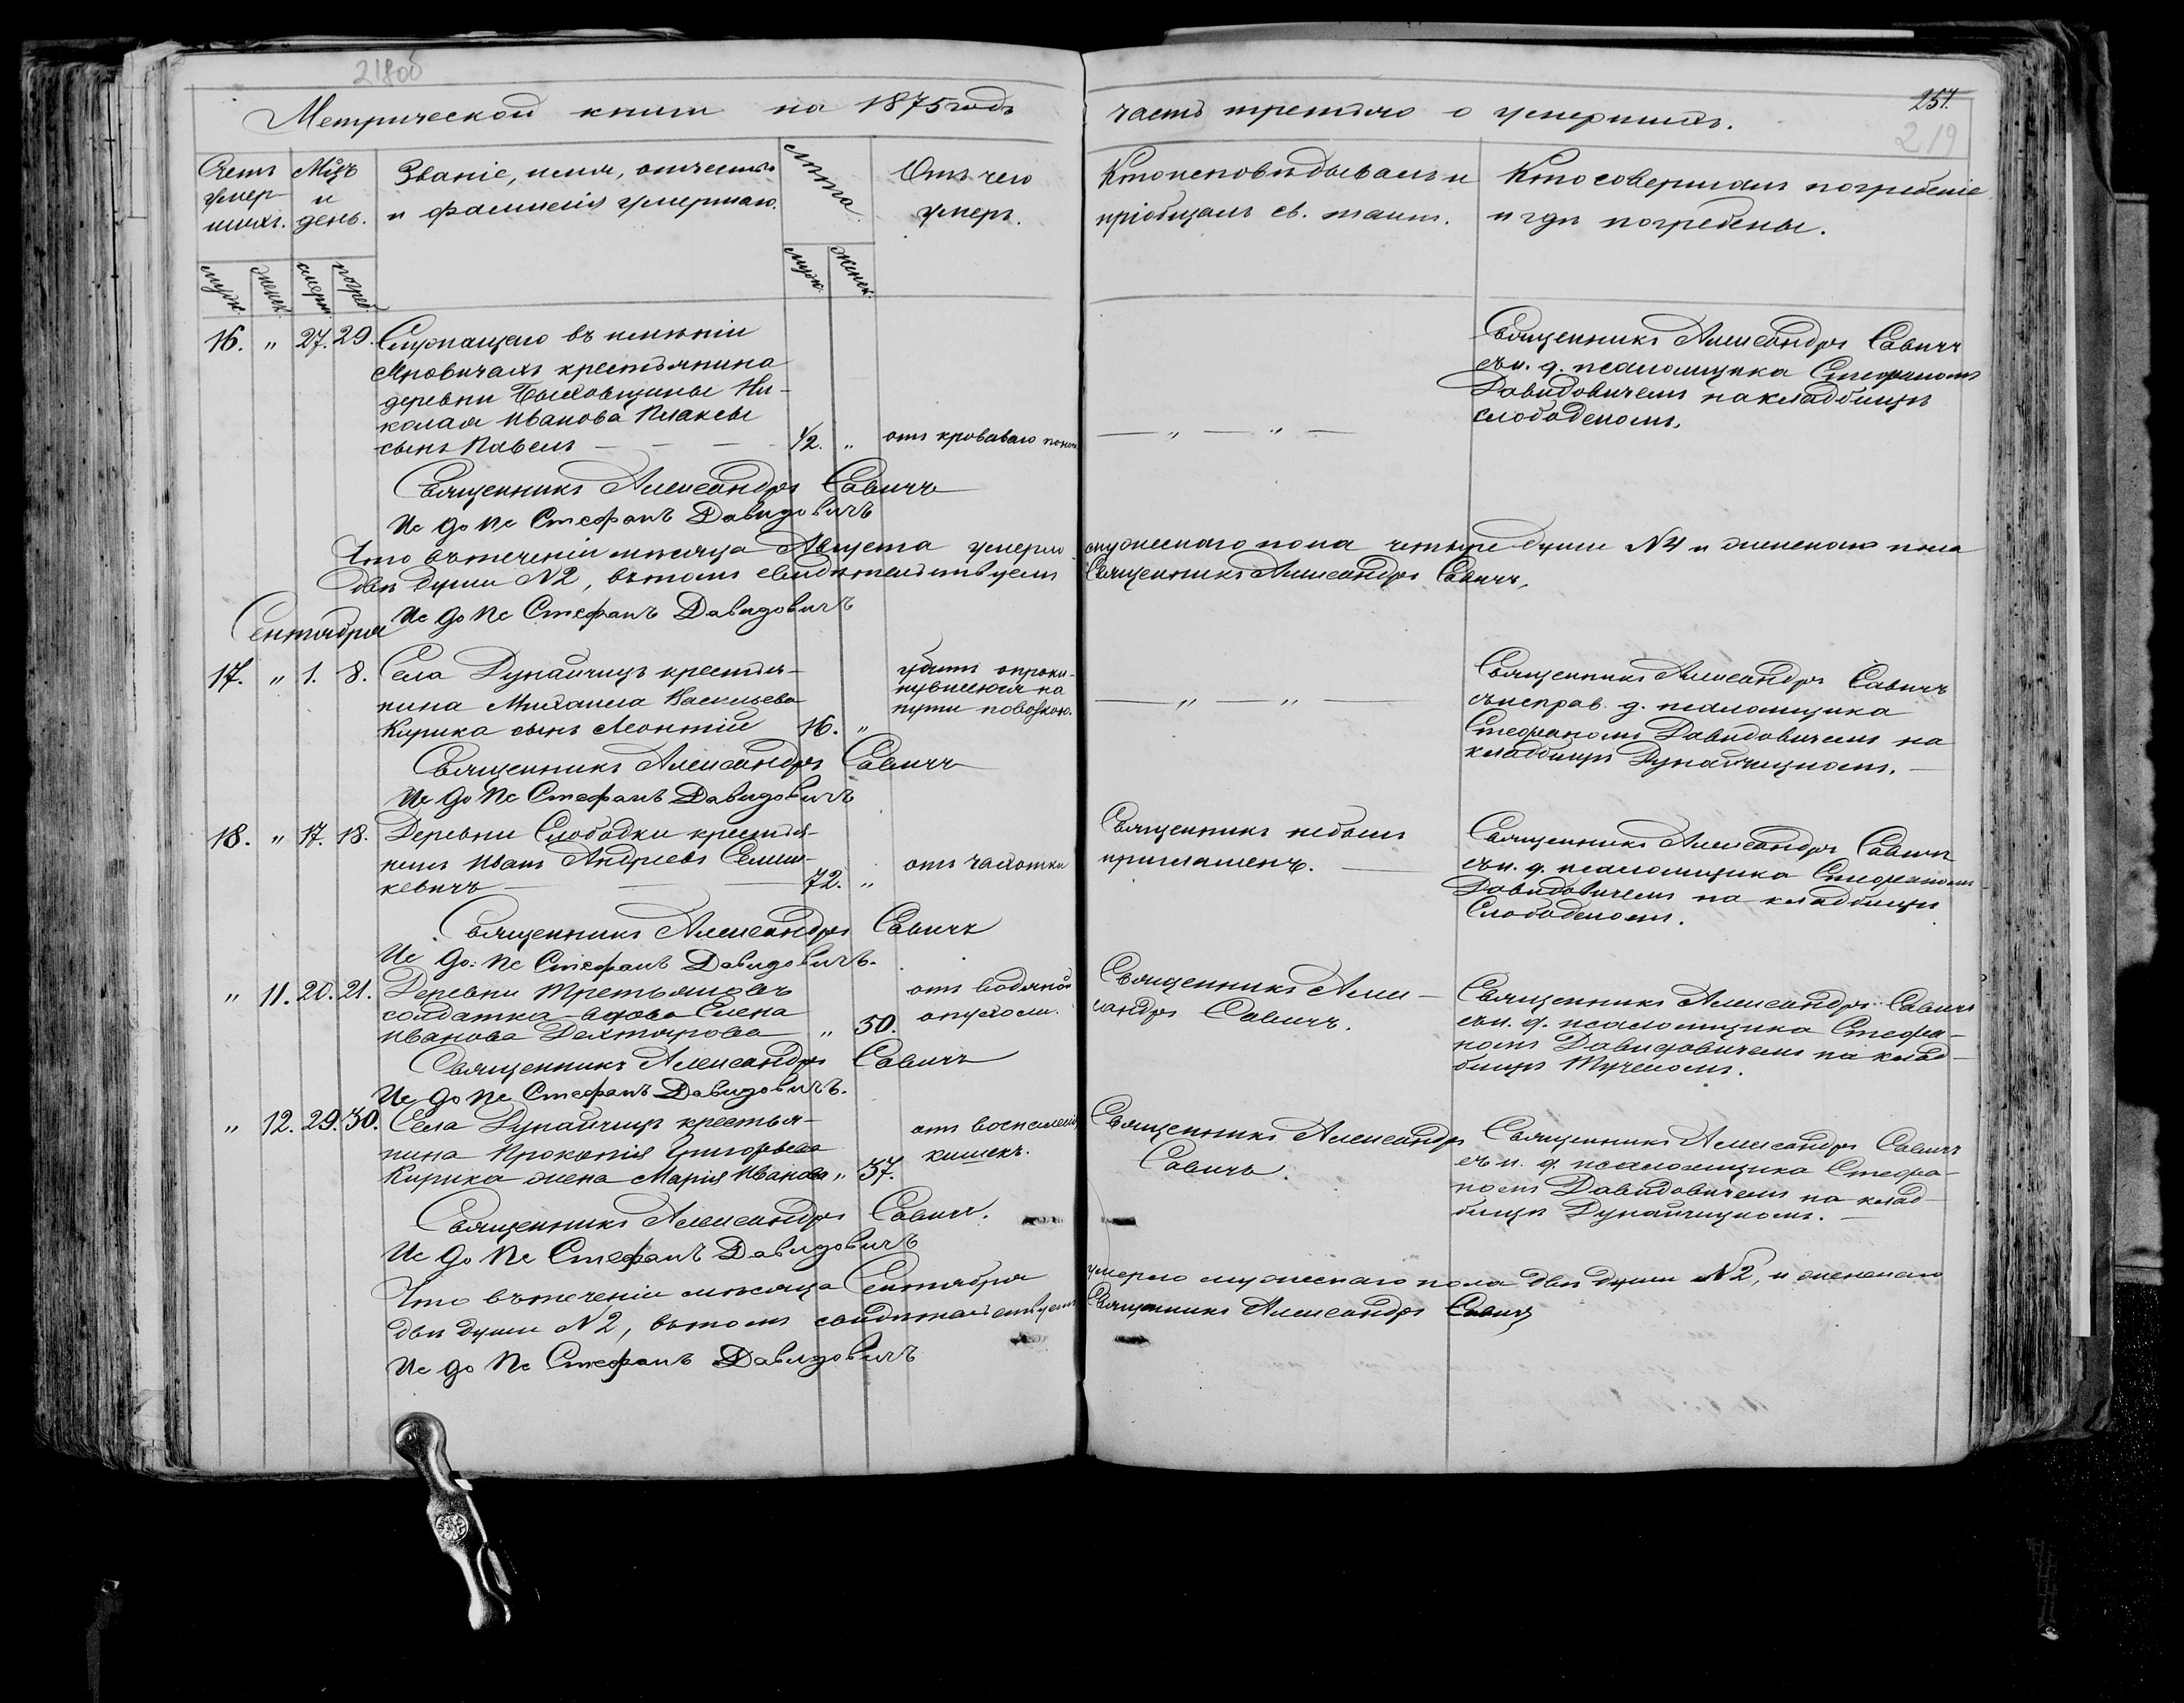 218об
Метрической книги на 1875 годъ
часть третья о умершихъ.
257.
219
Счетъ умер-шихъ.
Мцъ и день.
Званіе, имя, отчество
и фамилія умершаго.
Лѣта.
Отъ чего
умеръ.
Кто исповѣдывалъ и
пріобщалъ св. таин.
Кто совершалъ погребеніе
и гдѣ погребены.
муж.
женск.
смерти.
погреб.
муж.
женск.
16. " 27. 29. Служащаго въ имѣніи
крестьянина
деревни Ни-
колая Иванова Плаксы
сынъ Павелъ — — — 1/2. " отъ кроваваго поноса
— " — " —
Священникъ Александръ Савичъ
съ и. д. псаломщика Стефаномъ
Давидовичемъ на кладбищѣ
слободскомъ.
Священникъ Александръ Савичъ
Ис до Пс Стефанъ Давидовичъ
Что въ теченіи мѣсяца Августа умерло мужескаго пола четыре души №4 и женскаго пола
двѣ души №2, въ томъ свидѣтельствуемъ Священникъ Александръ Савичъ,
Ис до Пс Стефанъ Давидовичъ
Сентября
17. " 1. 8. Села Дунайчицъ крестья-
нина Михаила Васильева
Кирика сынъ Леонтій 16. "
убитъ опроки-
нувшеюся на
пути повозкою.
— " — " —
Священникъ Александръ Савичъ
съ исправ. д. псаломщика
Стефаномъ Давидовичемъ на
кладбищѣ Дунайчицкомъ. —
Священникъ Александръ Савичъ
Ис до Пс Стефанъ Давидовичъ
18. " 17. 18. Деревни Слободки крестья-
нинъ Иванъ Андреевъ Семаш-
кевичъ — — — 72. " отъ чахотки
Священникъ небылъ
приглашенъ. —
Священникъ Александръ Савичъ
съ и. д. псаломщика Стефаномъ
Давидовичемъ на кладбищѣ
Слободскомъ.
Священникъ Александръ Савичъ
Ис до: Пс Стефанъ Давидовичъ.
" 11. 20. 21. Деревни Третьяковъ
солдатка-вдова Елена
Иванова Дехтярова — " 50.
отъ водяной
опухоли.
Священникъ Алек-
сандръ Савичъ.
Священникъ Александръ Савичъ
съ и. д. псаломщика Стефа-
номъ Давидовичемъ на клад-
бищѣ Тучемъ.
Священникъ Александръ Савичъ
Ис до Пс Стефанъ Давидовичъ.
" 12. 29. 30. Села Дунайчицъ крестья-
нина Прокопія Григорьева
Кирика жена Марія Иванова " 37.
отъ воспаленія
кишекъ.
Священникъ Александръ
Савичъ.
Священникъ Александръ Савичъ
съ и. д. псаломщика Стефа-
номъ Давидовичемъ на клад-
бищѣ Дунайчицкомъ. —
Священникъ Александръ Савичъ.
Ис до Пс Стефанъ Давидовичъ
Что въ теченіи мѣсяца Сентября умерло мужескаго пола двѣ души №2, и женскаго
двѣ души №2, въ томъ свидѣтельствуемъ Священникъ Александръ Савичъ
Ис до Пс Стефанъ Давидовичъ